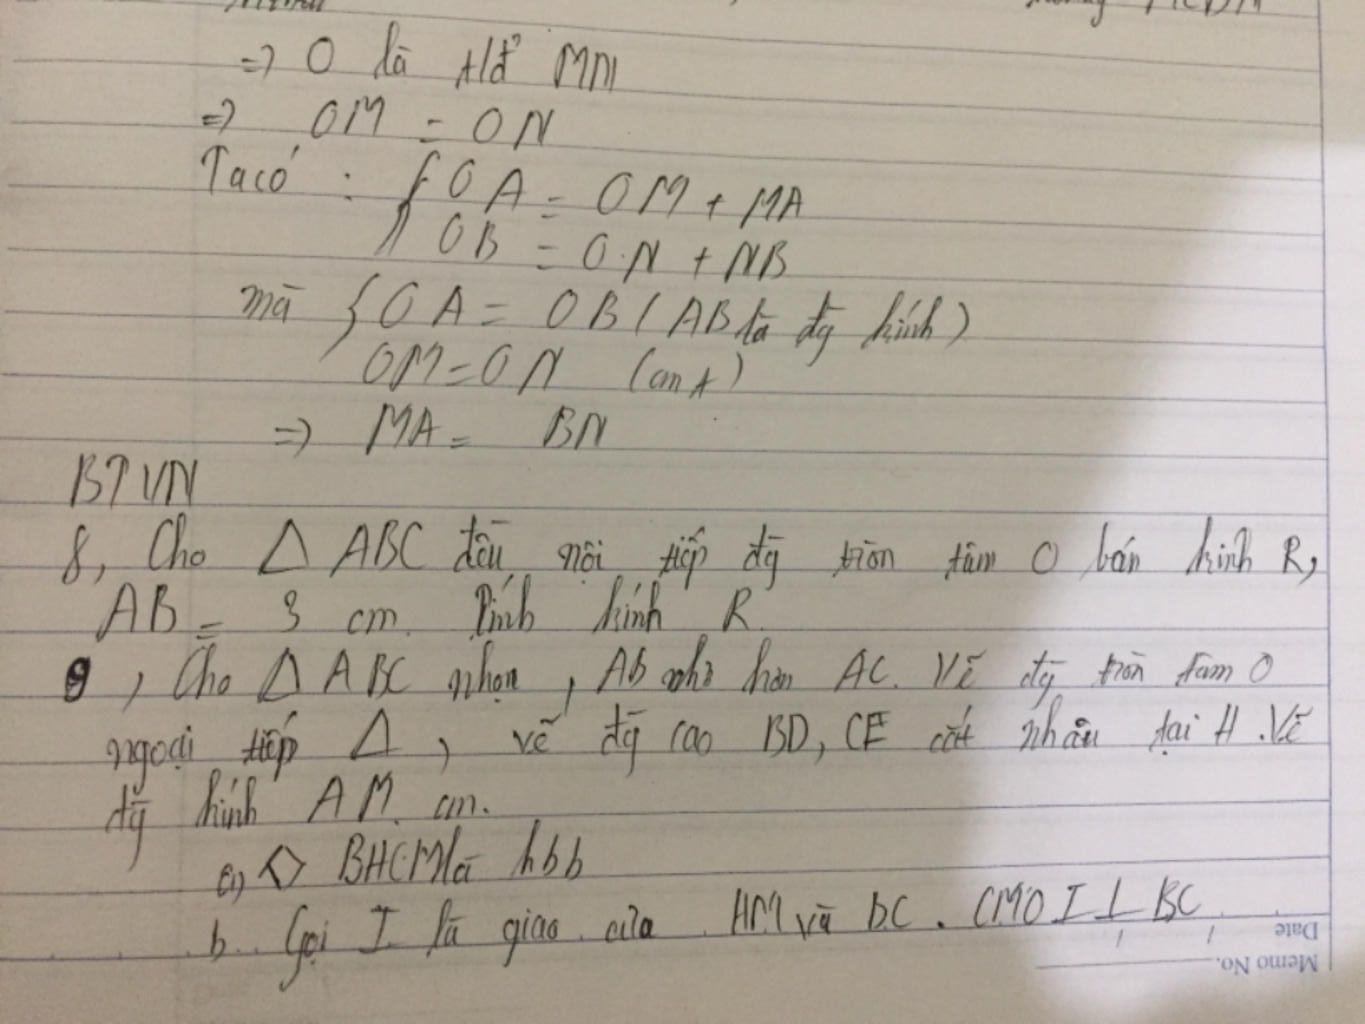 => O là t/đ MN
=> OM = ON
Ta có : { OA = OM + MA
OB = ON + NB
mà { OA = OB ( AB là đg kính )
OM = ON (cmt)
=> MA = BN
BTVN
8, Cho △ ABC đều nội tiếp đg tròn tâm O bán kinh R,
AB = 3 cm. Tính kính R.
9, Cho △ ABC nhọn, AB nhỏ hơn AC. Vẽ đg tròn tâm O
ngoại tiếp △, vẽ đg cao BD, CE cắt nhau tại H. Vẽ
đg kính AM. cm.
a, ◇ BHCM là hbh
b. Gọi I là giao của HM và BC. CM OI ⊥ BC
Date
Memo No.